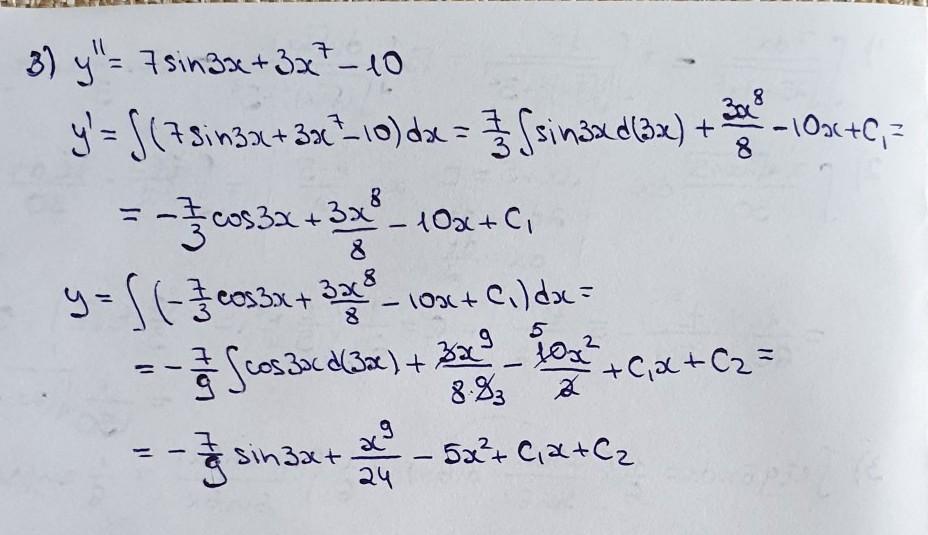 3) y'' = 7sin3x + 3x⁷ − 10
y' = ∫(7sin3x + 3x⁷ − 10)dx = 7/3 ∫sin3xd(3x) + 3x⁸/8 − 10x + C₁ =
= −7/3 cos3x + 3x⁸/8 − 10x + C₁
y = ∫(−7/3 cos3x + 3x⁸/8 − 10x + C₁)dx =
= −7/9 ∫cos3xd(3x) + 3x⁹/8·9₃ − ⁵10x²/2 + C₁x + C₂ =
= −7/9 sin3x + x⁹/24 − 5x² + C₁x + C₂